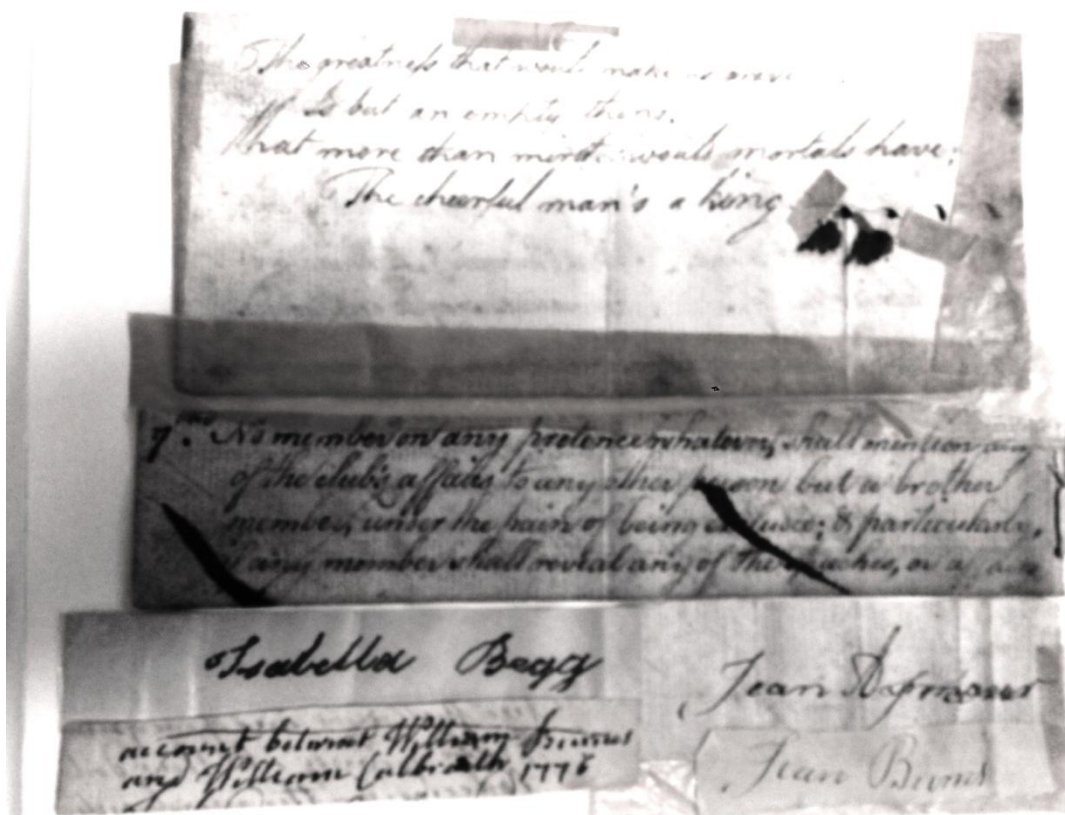 The greatness that would make us grave
Is but an empty thing.
What more than mirth would mortals have;
The cheerful man's a king
7mo. No member on any pretence whatever, shall mention any
of the club's affairs to any other person but a brother
member, under the pain of being excluded; & particularly,
if any member shall reveal any of the speeches, or affairs
Isabella Begg
Jean
account betwixt William Burnes
and William 1775
Jean Burns